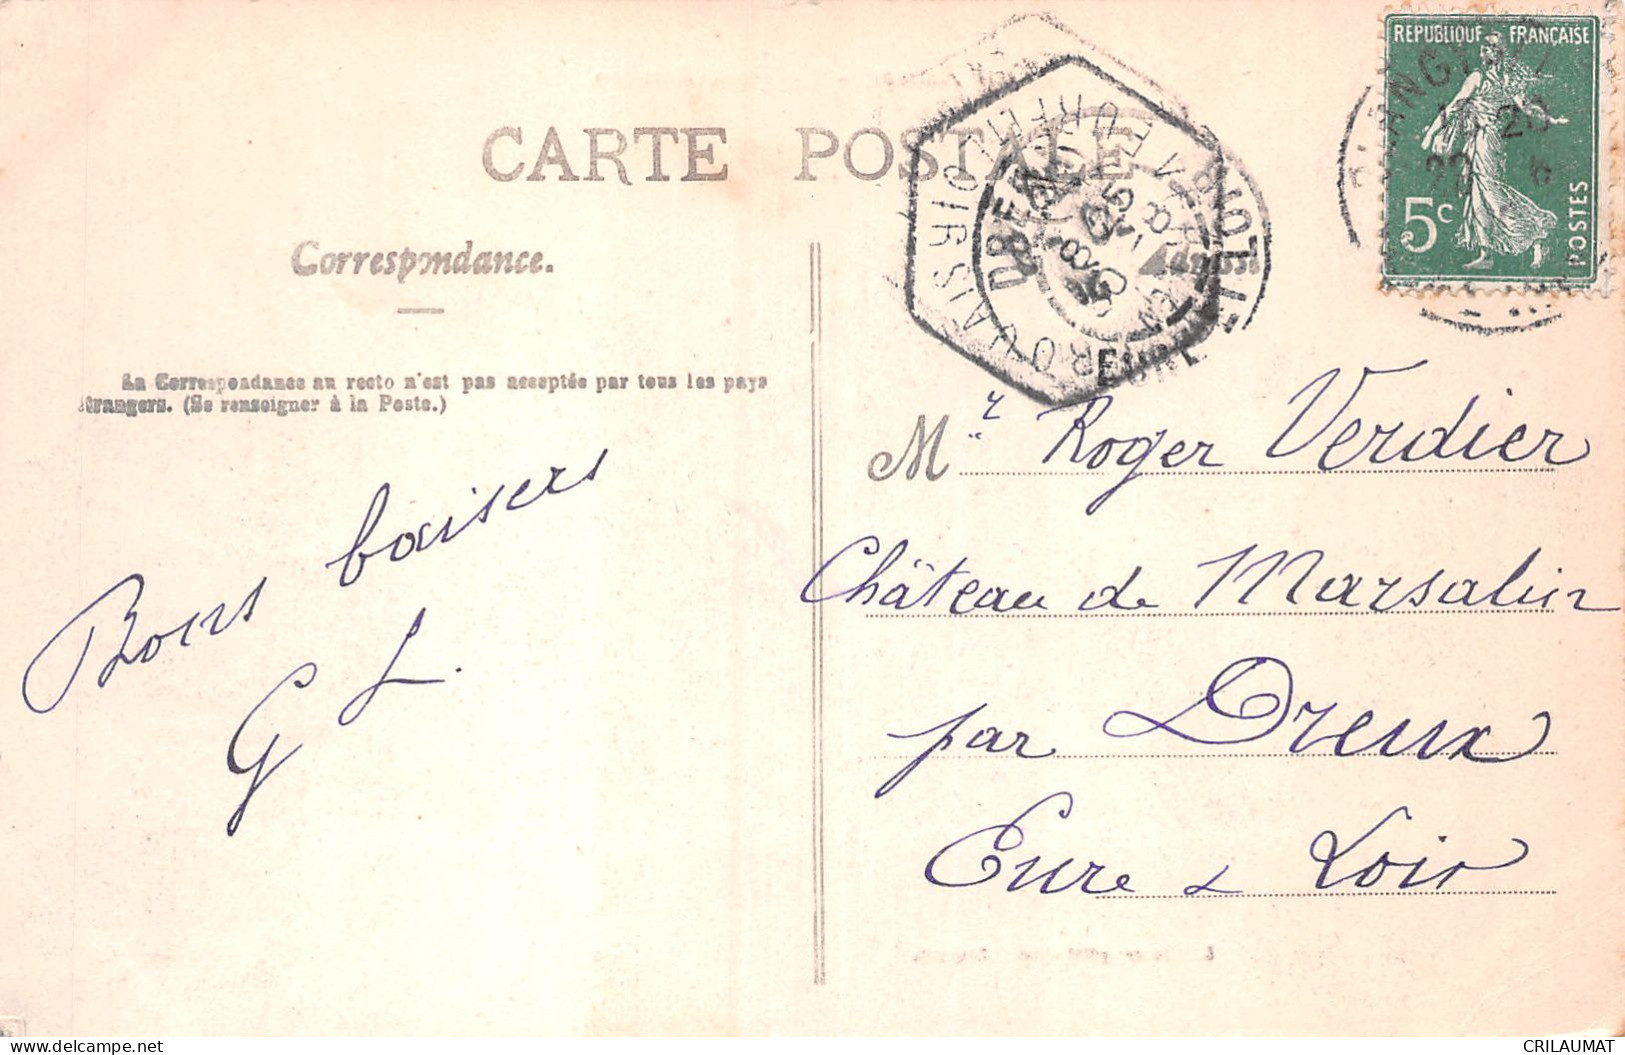 CARTE POSTALE
Correspondance.
La Correspondance au recto n'est pas acceptée par tous les pays
étrangers. (Se renseigner à la Poste.)
Bons baisers
G L.
REPUBLIQUE FRANÇAISE
5c
POSTES
DREUX
EURE-ET-LOIR
Mr Roger Verdier
Château de Marsalin
par Dreux
Eure & Loir
CRILAUMAT